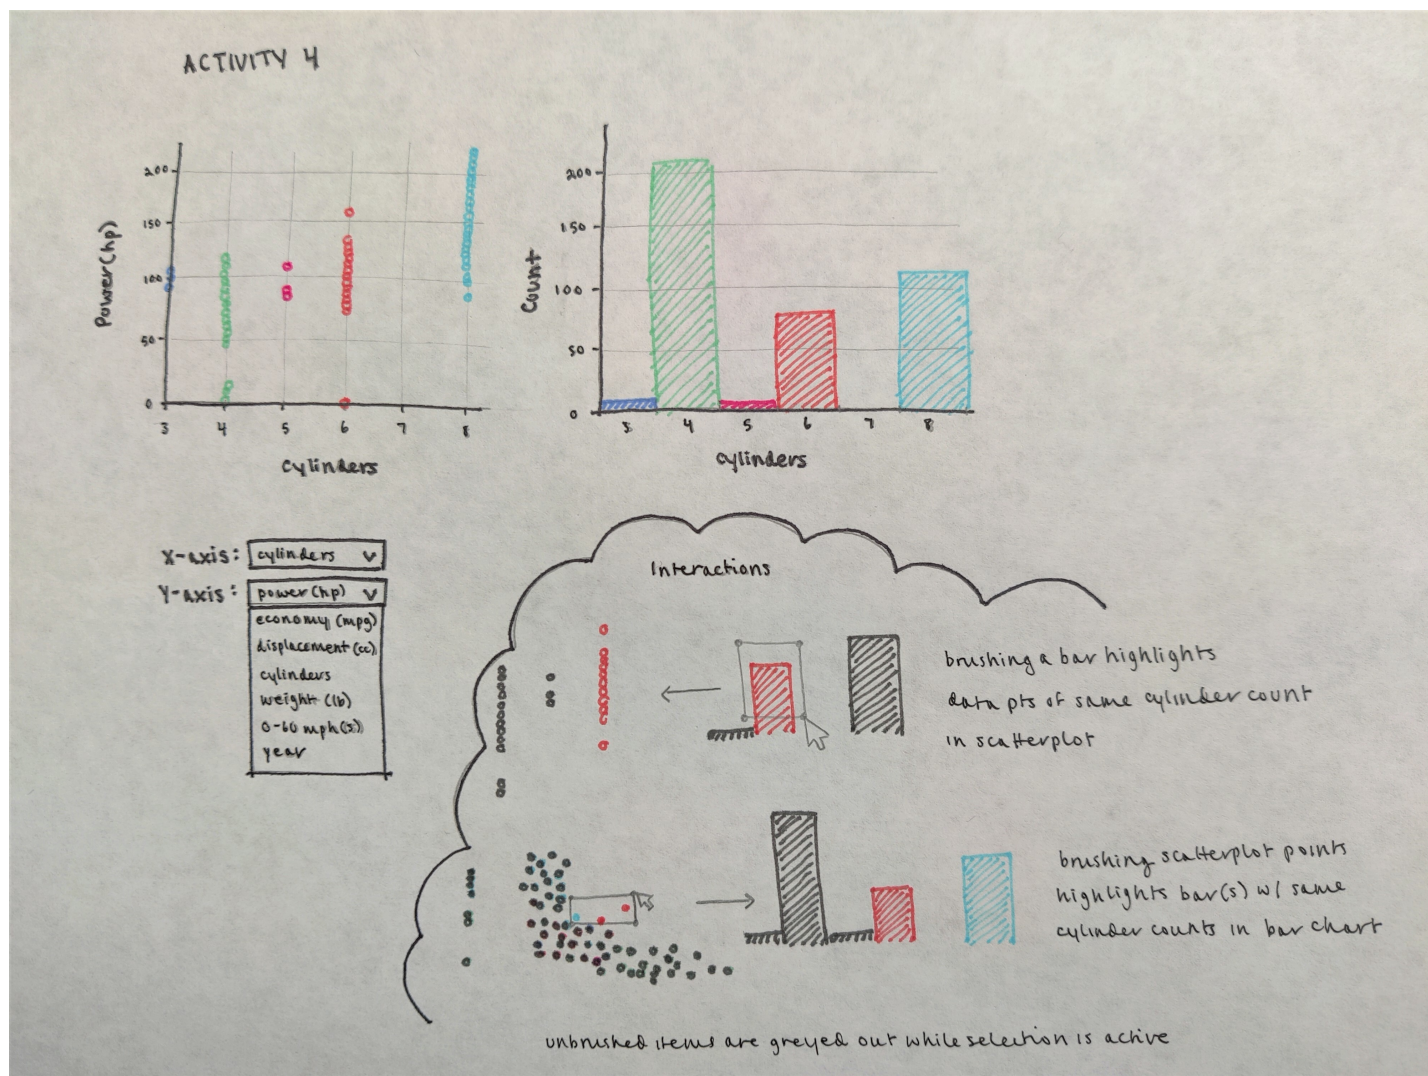 ACTIVITY 4
Power(hp)
200
150
100
50
0
3 4 5 6 7 8
cylinders
Count
200
150
100
50
0
3 4 5 6 7 8
cylinders
X-axis: cylinders
Y-axis: power (hp)
economy (mpg)
displacement (cc)
cylinders
weight (lb)
0-60 mph (s)
year
Interactions
brushing a bar highlights
data pts of same cylinder count
in scatterplot
brushing scatterplot points
highlights bar(s) w/ same
cylinder counts in bar chart
unbrushed items are greyed out while selection is active